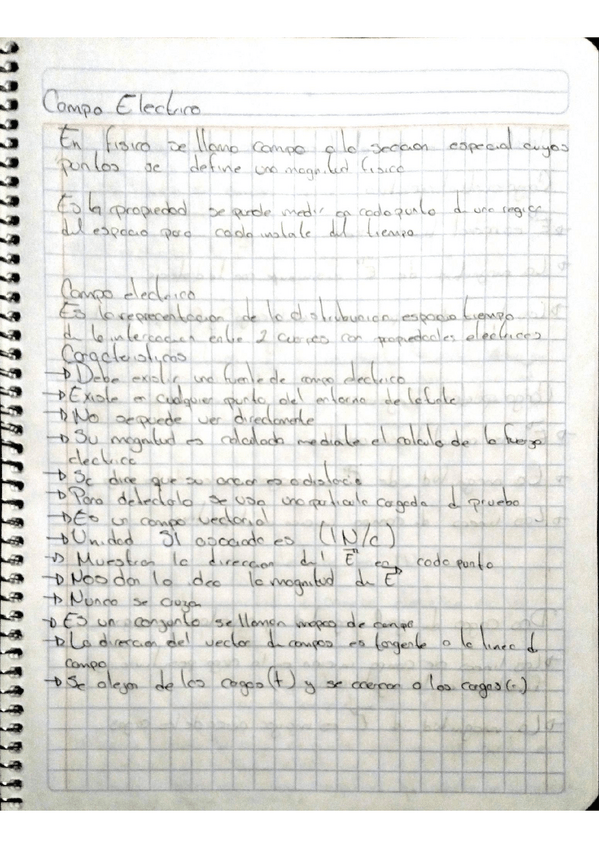 Campo Electrico
En fisica se llama campo a la seccion espacial cuyos
puntos se define una magnitud fisica
Es la propiedad se puede medir en cada punto d una region
del espacio para cada instate del tiempo
Campo electrico
Es la representacion de la distribucion espacio tiempo
de la interaccion entre 2 cuerpos con propiedades electricas
Caracteristicas
→ Debe existir una fuente de campo electrico
→ Existe en cualquier punto del entorno de la fuente
→ No se puede ver directamente
→ Su magnitud es calculada mediate el calculo de la fuerza
electrica
→ Se dice que su accion es a distacia
→ Para detectalo se usa una particula cargada d prueba
→ Es un campo vectorial
→ Unidad SI asociada es (1N/c)
→ Muestran la direccion del E en cada punto
→ Nos dan la idea la magnitud de E
→ Nunca se cruzan
→ Es un conjunto se llaman mapas de campo
→ La direccion del vector d campos es tangente a la linea d
campo
→ Se alejan de las cargas (+) y se acercan a las cargas (-)